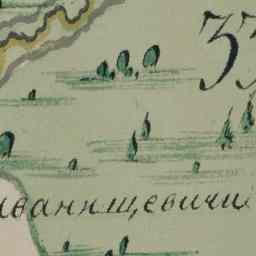 33
иванищевичи